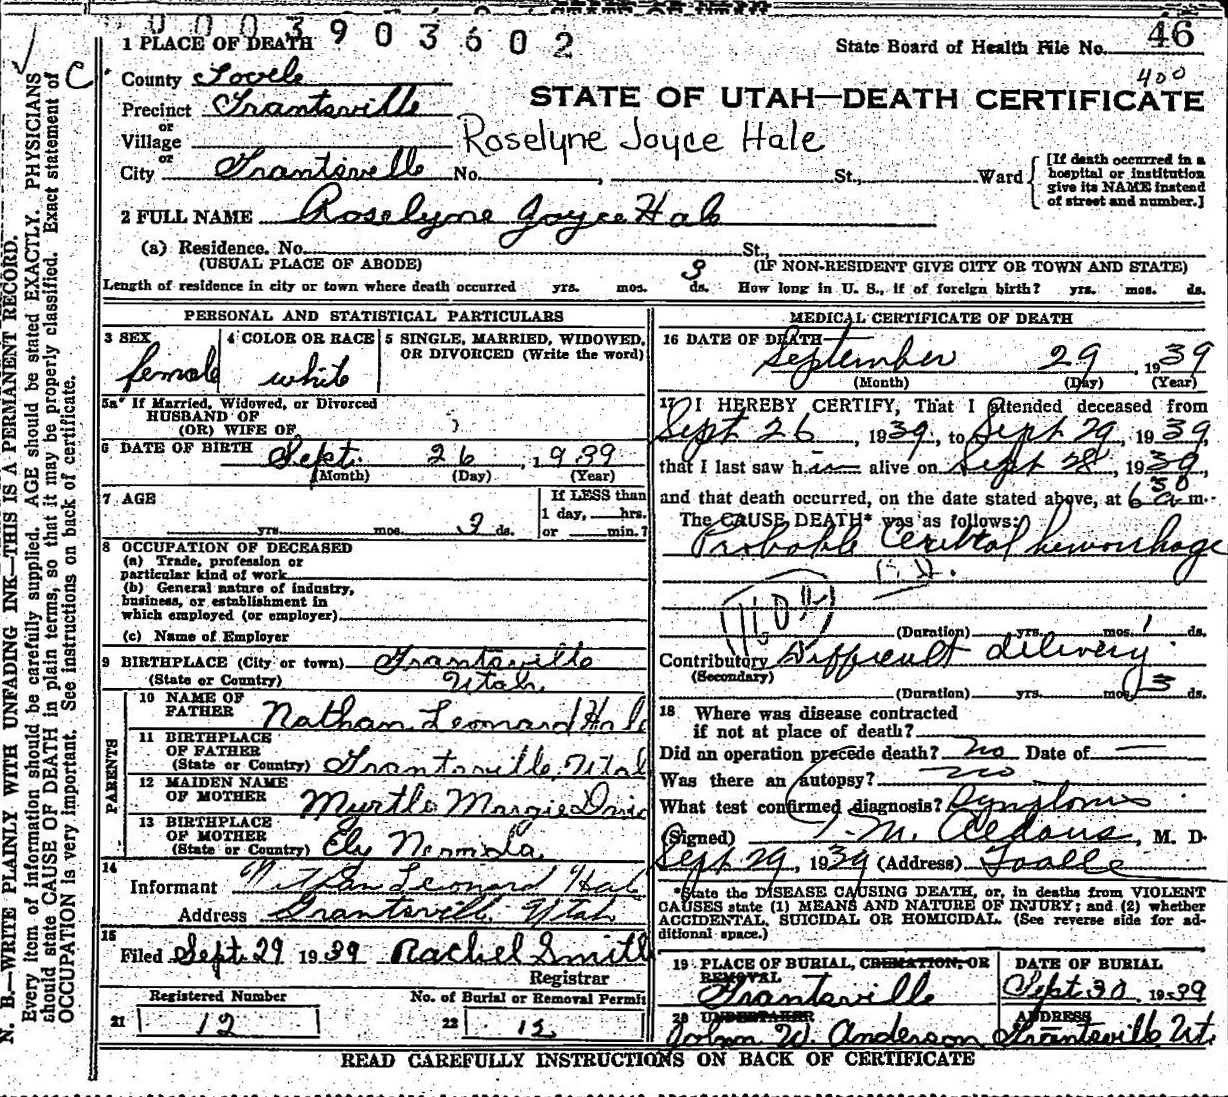 0003903602
1 PLACE OF DEATH
State Board of Health File No. 46
400
County Tooele
STATE OF UTAH—DEATH CERTIFICATE
Precinct Grantsville
or
Village
Roselyne Joyce Hale
or
City Grantsville No. , St., Ward
[If death occurred in a
hospital or institution
give its NAME instead
of street and number.]
2 FULL NAME Roselyne Joyce Hale
(a) Residence. No. St.
(USUAL PLACE OF ABODE) (IF NON-RESIDENT GIVE CITY OR TOWN AND STATE)
Length of residence in city or town where death occurred yrs. mos. 3 ds. How long in U. S., if of foreign birth? yrs. mos. ds.
PERSONAL AND STATISTICAL PARTICULARS
3 SEX
female
4 COLOR OR RACE
white
5 SINGLE, MARRIED, WIDOWED,
OR DIVORCED (Write the word)
5a If Married, Widowed, or Divorced
HUSBAND OF
(OR) WIFE OF
6 DATE OF BIRTH Sept. 26, 1939
(Month) (Day) (Year)
7 AGE
yrs. mos. 3 ds.
If LESS than
1 day, hrs.
or min.?
8 OCCUPATION OF DECEASED
(a) Trade, profession or
particular kind of work
(b) General nature of industry,
business, or establishment in
which employed (or employer)
(c) Name of Employer
9 BIRTHPLACE (City or town) Grantsville
(State or Country) Utah.
PARENTS
10 NAME OF
FATHER Nathan Leonard Hale
11 BIRTHPLACE
OF FATHER
(State or Country) Grantsville, Utah
12 MAIDEN NAME
OF MOTHER Myrtle Margie
13 BIRTHPLACE
OF MOTHER
(State or Country) Ely Nevada.
14
Informant Nathan Leonard Hale
Address Grantsville, Utah
15
Filed Sept. 29 1939 Rachel Smith
Registrar
Registered Number
21 12
No. of Burial or Removal Permit
22 12
MEDICAL CERTIFICATE OF DEATH
16 DATE OF DEATH
September 29, 1939
(Month) (Day) (Year)
17 I HEREBY CERTIFY, That I attended deceased from
Sept 26, 1939, to Sept 29, 1939,
that I last saw h alive on Sept 28, 1939,
and that death occurred, on the date stated above, at 6 30 a m.
The CAUSE DEATH* was as follows:
Probable Cerebral hemorrhage
(Duration) yrs. mos. 1 ds.
Contributory Difficult delivery
(Secondary)
(Duration) yrs. mos. 3 ds.
18 Where was disease contracted
if not at place of death?
Did an operation precede death? no Date of —
Was there an autopsy? no
What test confirmed diagnosis? Symptoms
(Signed) M. D.
Sept 29, 1939 (Address) Tooele
*State the DISEASE CAUSING DEATH, or, in deaths from VIOLENT
CAUSES state (1) MEANS AND NATURE OF INJURY; and (2) whether
ACCIDENTAL, SUICIDAL OR HOMICIDAL. (See reverse side for ad-
ditional space.)
19 PLACE OF BURIAL, CREMATION, OR
REMOVAL
Grantsville
DATE OF BURIAL
Sept 30, 1939
20 UNDERTAKER
John W. Anderson
ADDRESS
Grantsville Ut.
READ CAREFULLY INSTRUCTIONS ON BACK OF CERTIFICATE
N. B.—WRITE PLAINLY WITH UNFADING INK—THIS IS A PERMANENT RECORD.
Every item of information should be carefully supplied. AGE should be stated EXACTLY. PHYSICIANS
should state CAUSE OF DEATH in plain terms, so that it may be properly classified. Exact statement of
OCCUPATION is very important. See instructions on back of certificate.